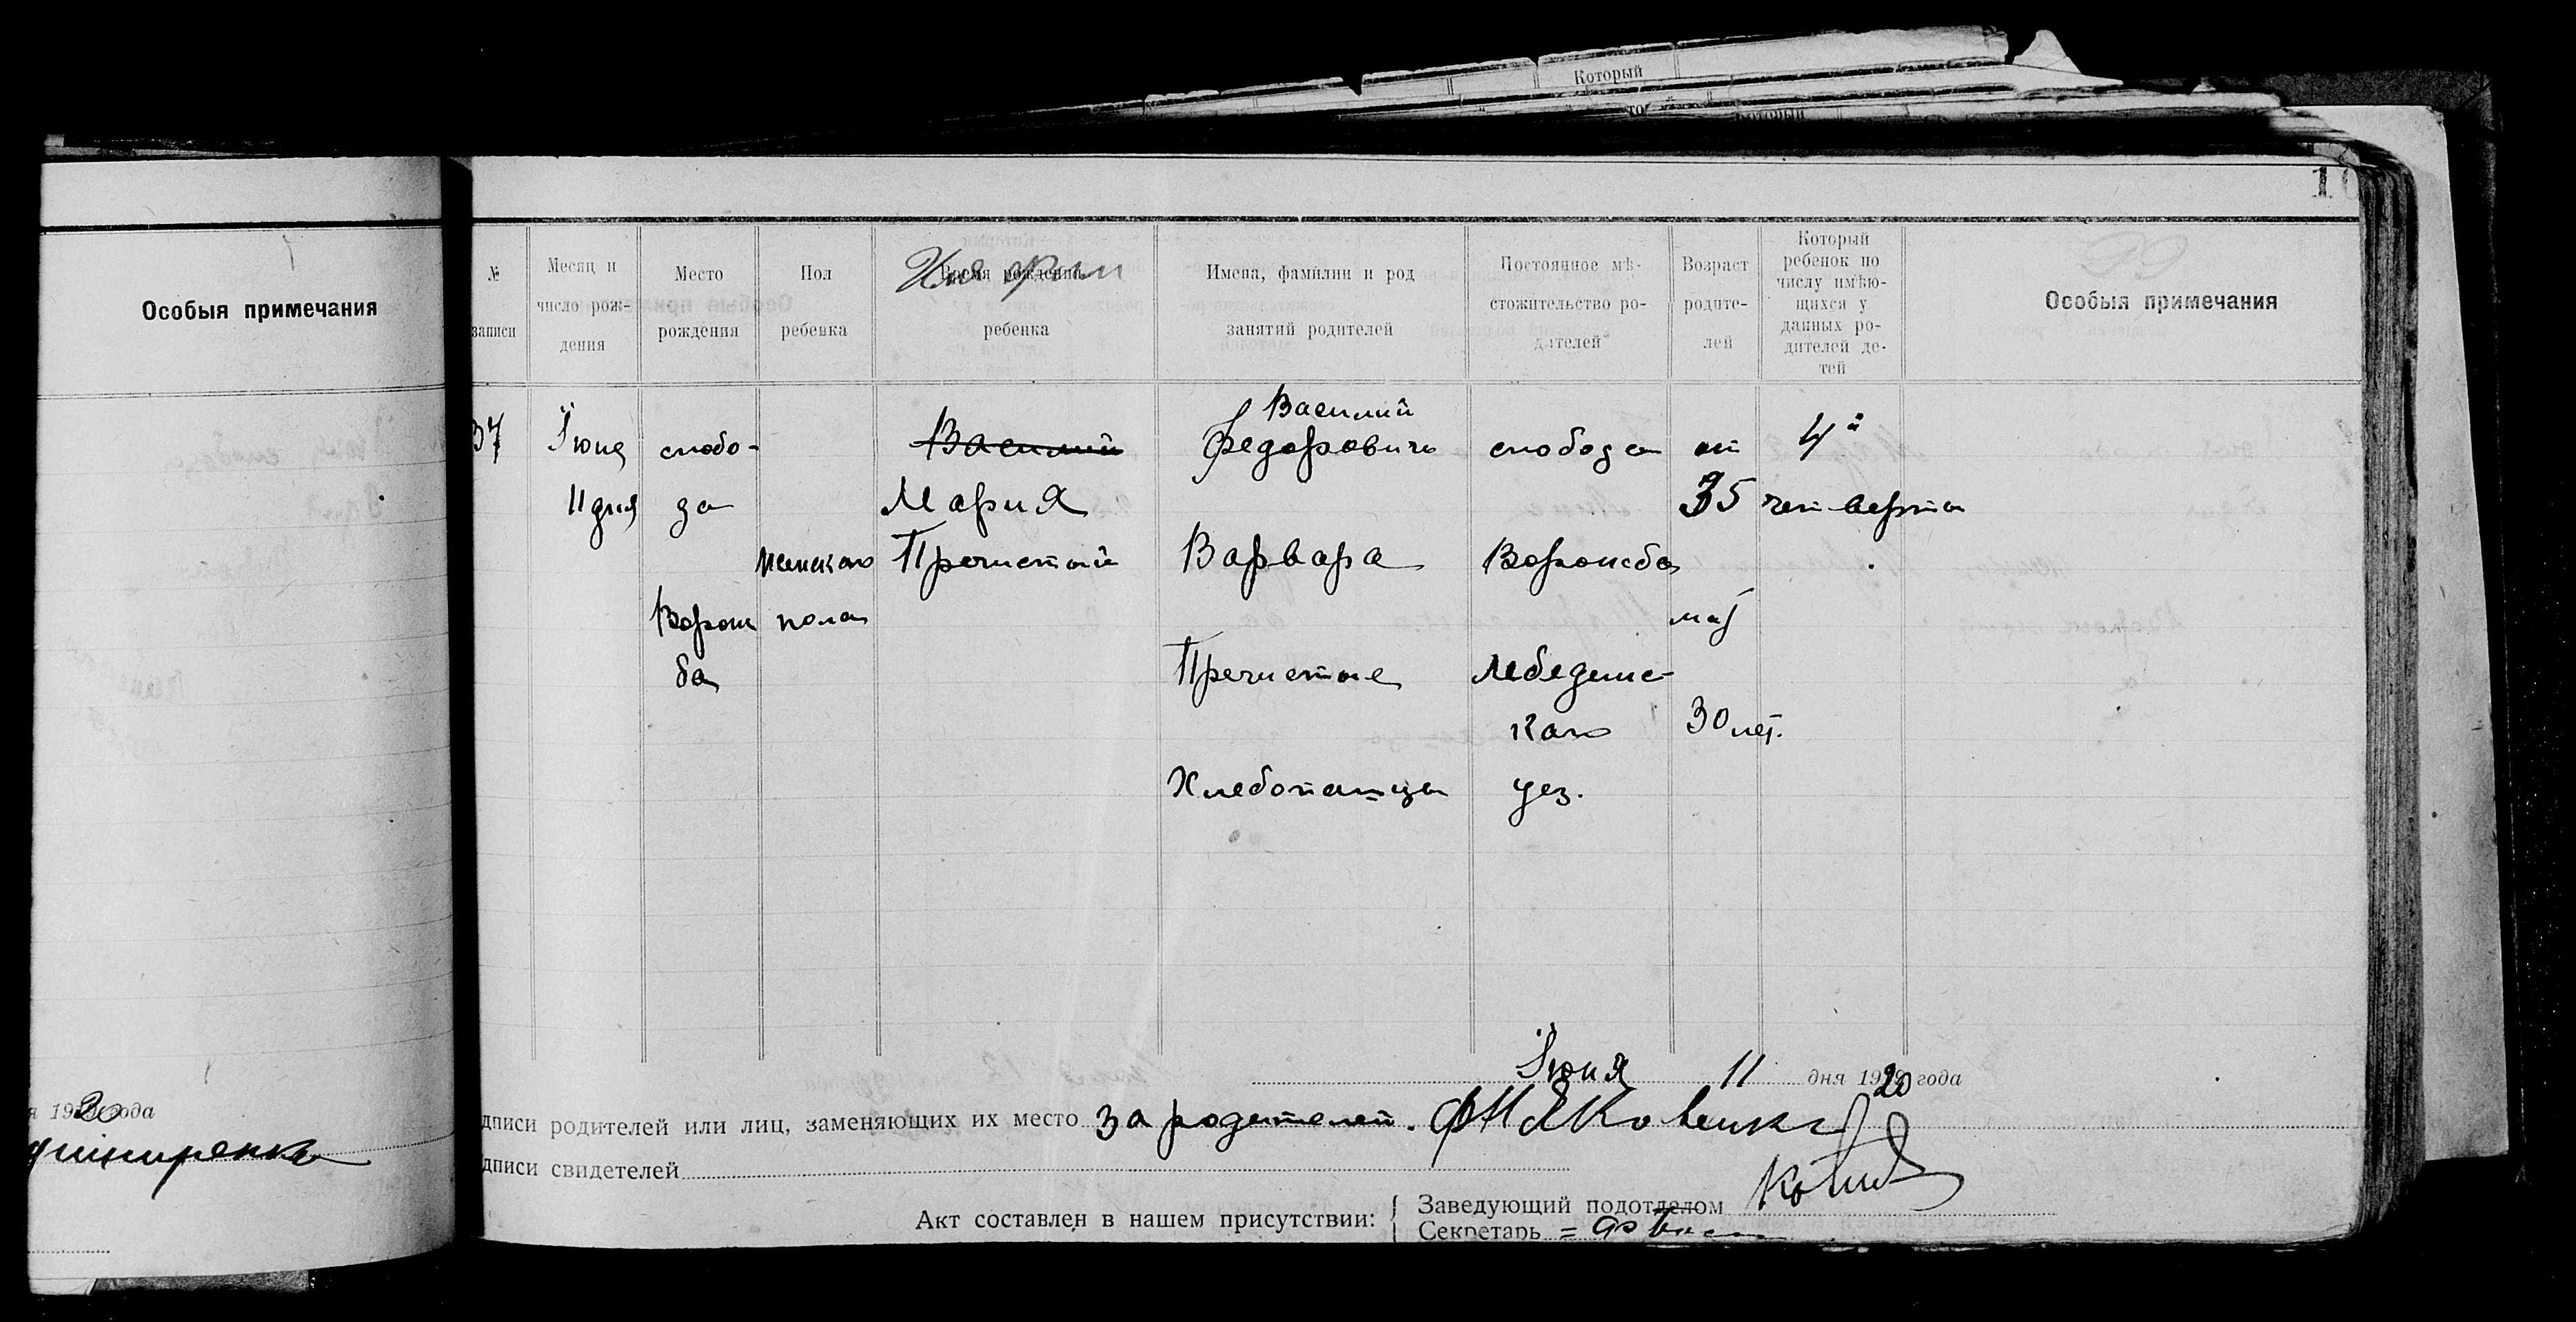 Который
Который
10
Особыя примечания
№ записи
Месяц и число рож- дения
Место рождения
Пол ребенка
Время рождения ребенка
Имена, фамилии и род занятий родителей
Постоянное мѣ- стожительство ро- дителей
Возраст родите- лей
Который ребенок по числу имѣю- щихся у данных ро- дителей де- тей
Особыя примечания
37
Iюня
11 дня
слобо-
да
Ворож
ба
женскаго
пола
Василий
Мария
Пречистый
Василий
Федоровичъ
Варвара
Пречистые
Хлебопашцы
слобода
Ворожба
Лебединс-
каго
уез.
от
35
мат
30 лет.
4й
четверта
Iюня 11 дня 1920 года
я 1920 года
дписи родителей или лиц, заменяющих их место за родителей. Яковенко
дписи свидетелей
Акт составлен в нашем присутствии:
Заведующий подотделом
Секретарь